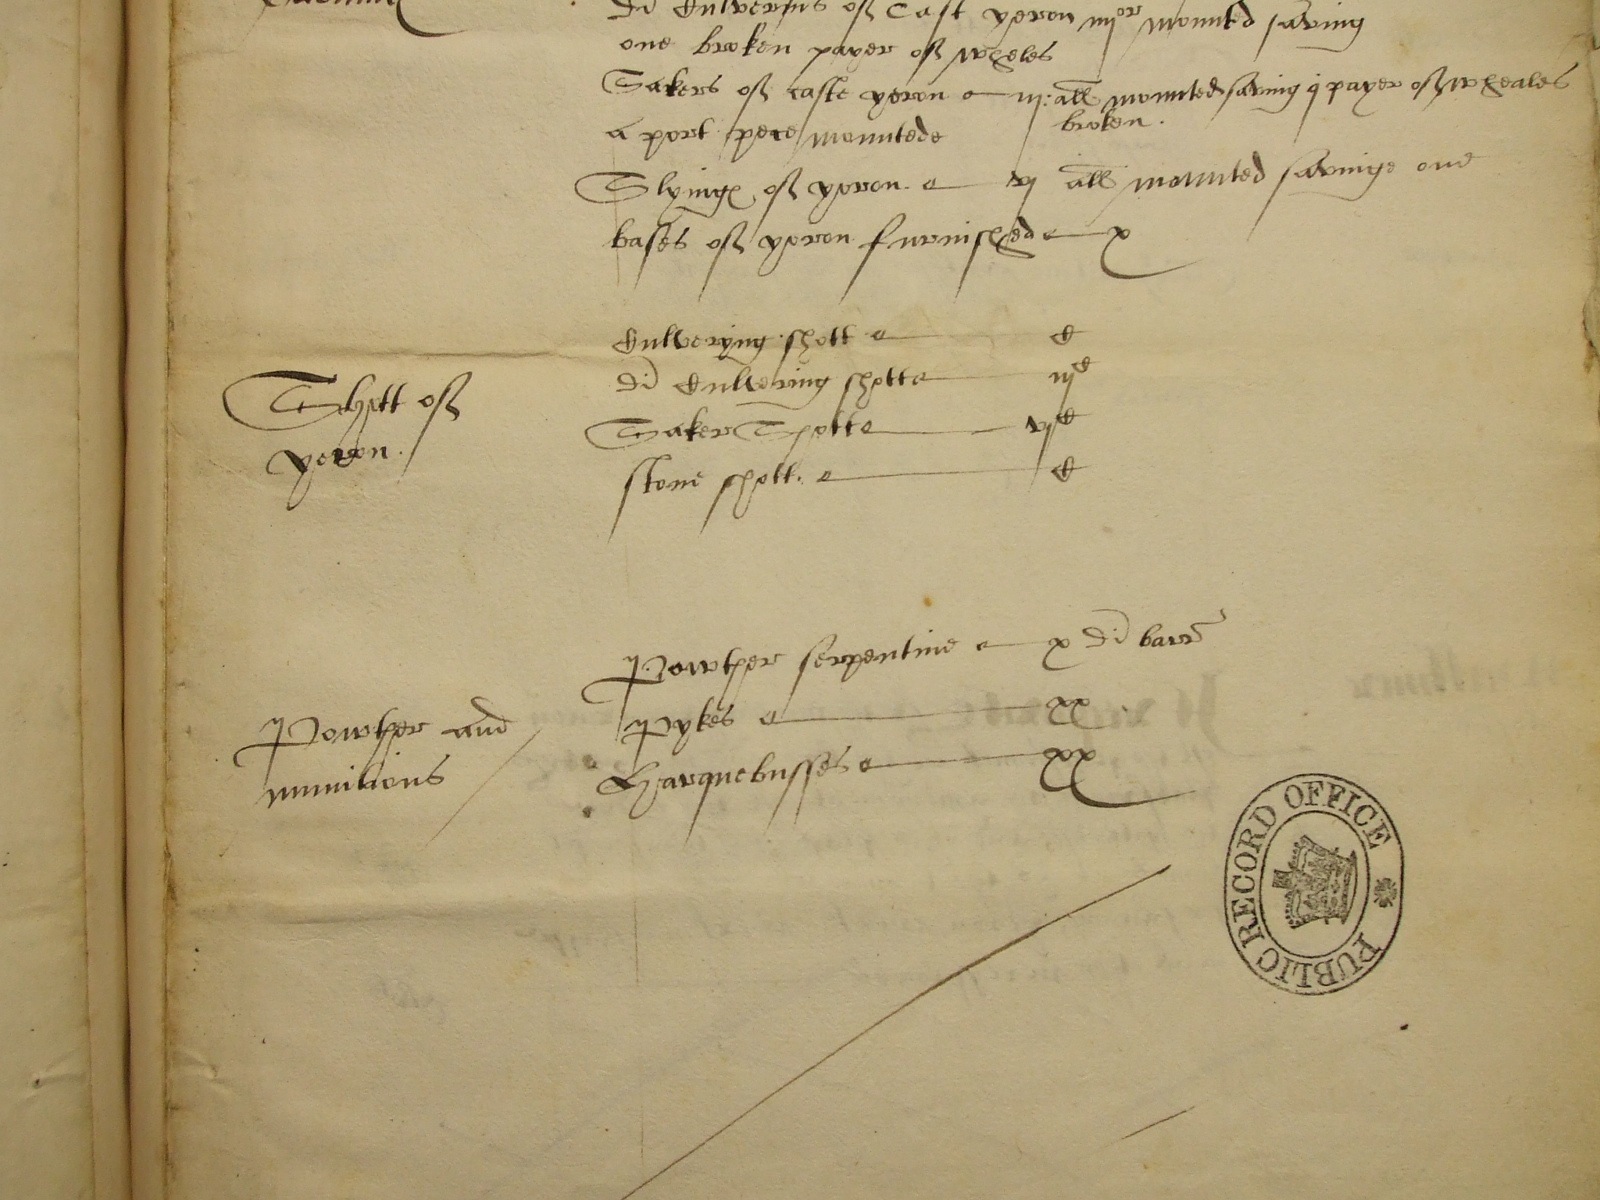 di Culverins off Cast yeron iiij or mounted saving
one broken payer off wheles
Sakers off caste yeron iij: all mounted saving j payer off wheales
broken.
a port pece mountede
Slyinges off yeron vj all mounted savinge one
bases off yeron furnisshed x
Shott off
yeron.
Culveryng shott C
di Culvering shotte iij C
Saker Shotte vj C
stone shott. C
Powther and
munitions
Powther serpentine x di barr
Pykes xx
Harquebusses xx
PUBLIC RECORD OFFICE